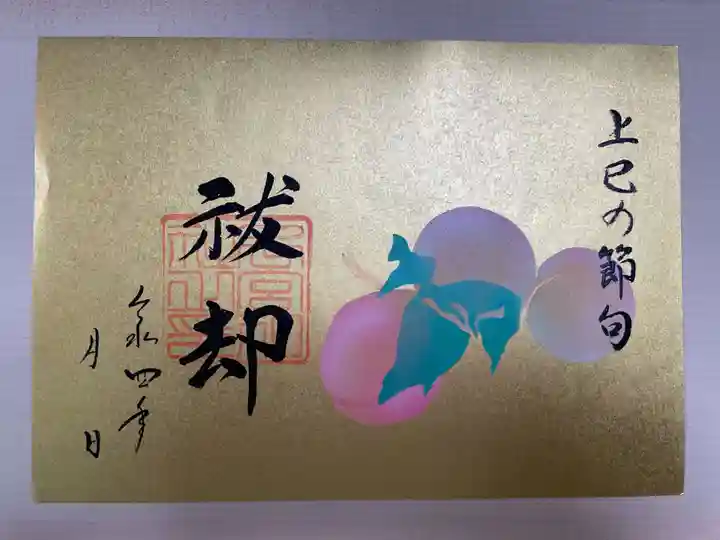 上巳の節句
祓却
令和四年
月 日